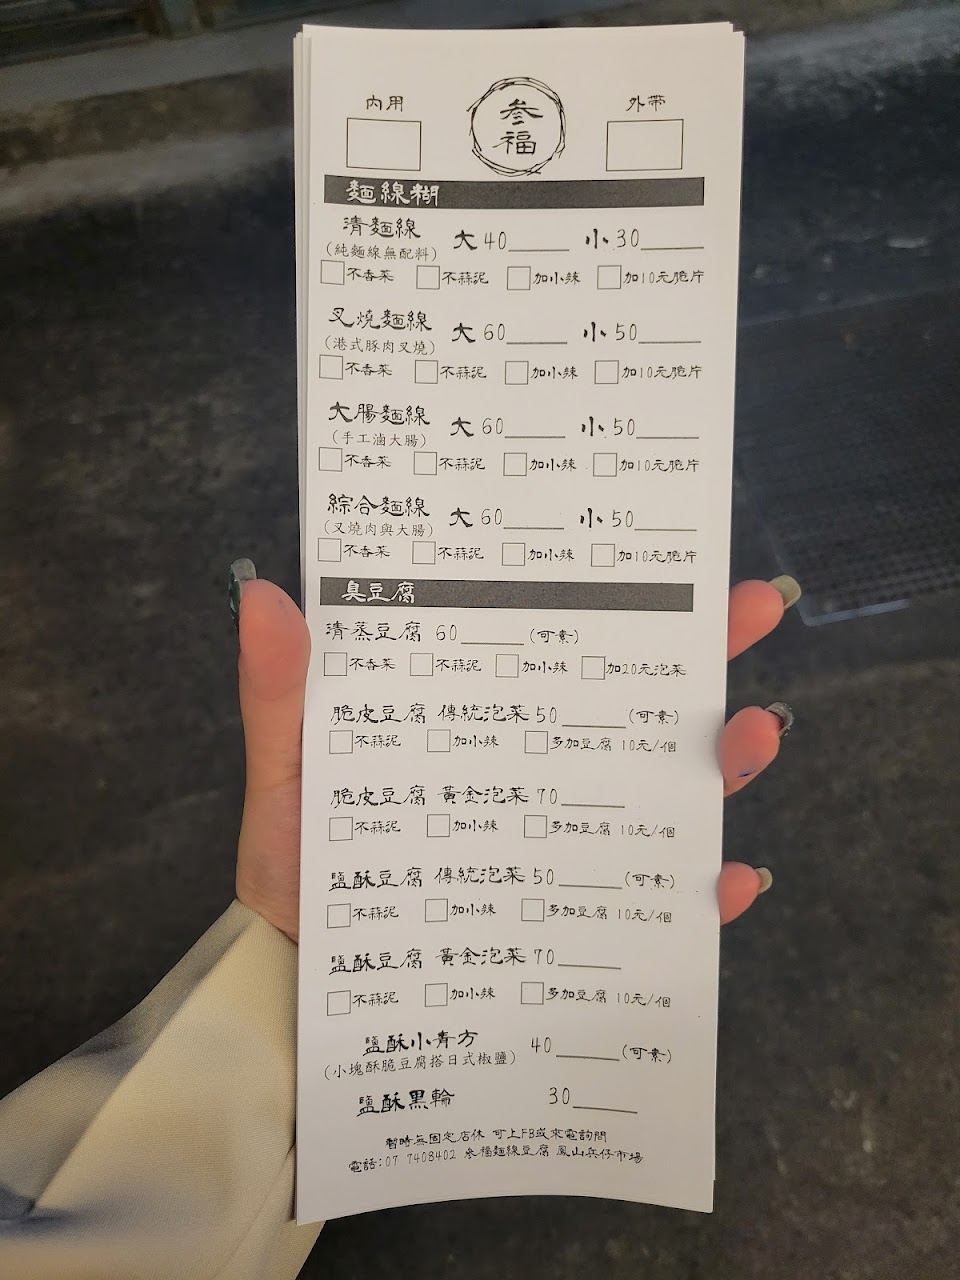 內用 外帶
叁福
麵線糊
清麵線 大40______ 小30______
(純麵線無配料)
□不香菜 □不蒜泥 □加小辣 □加10元脆片
叉燒麵線 大60______ 小50______
(港式豚肉叉燒)
□不香菜 □不蒜泥 □加小辣 □加10元脆片
大腸麵線 大60______ 小50______
(手工滷大腸)
□不香菜 □不蒜泥 □加小辣 □加10元脆片
綜合麵線 大60______ 小50______
(叉燒肉與大腸)
□不香菜 □不蒜泥 □加小辣 □加10元脆片
臭豆腐
清蒸豆腐 60______(可素)
□不香菜 □不蒜泥 □加小辣 □加20元泡菜
脆皮豆腐 傳統泡菜50______(可素)
□不蒜泥 □加小辣 □多加豆腐 10元/個
脆皮豆腐 黃金泡菜70______
□不蒜泥 □加小辣 □多加豆腐 10元/個
鹽酥豆腐 傳統泡菜50______(可素)
□不蒜泥 □加小辣 □多加豆腐 10元/個
鹽酥豆腐 黃金泡菜70______
□不蒜泥 □加小辣 □多加豆腐 10元/個
鹽酥小青方 40______(可素)
(小塊酥脆豆腐搭日式椒鹽)
鹽酥黑輪 30______
暫時無固定店休 可上FB或來電詢問
電話:07 7408402 叁福麵線豆腐 鳳山兵仔市場